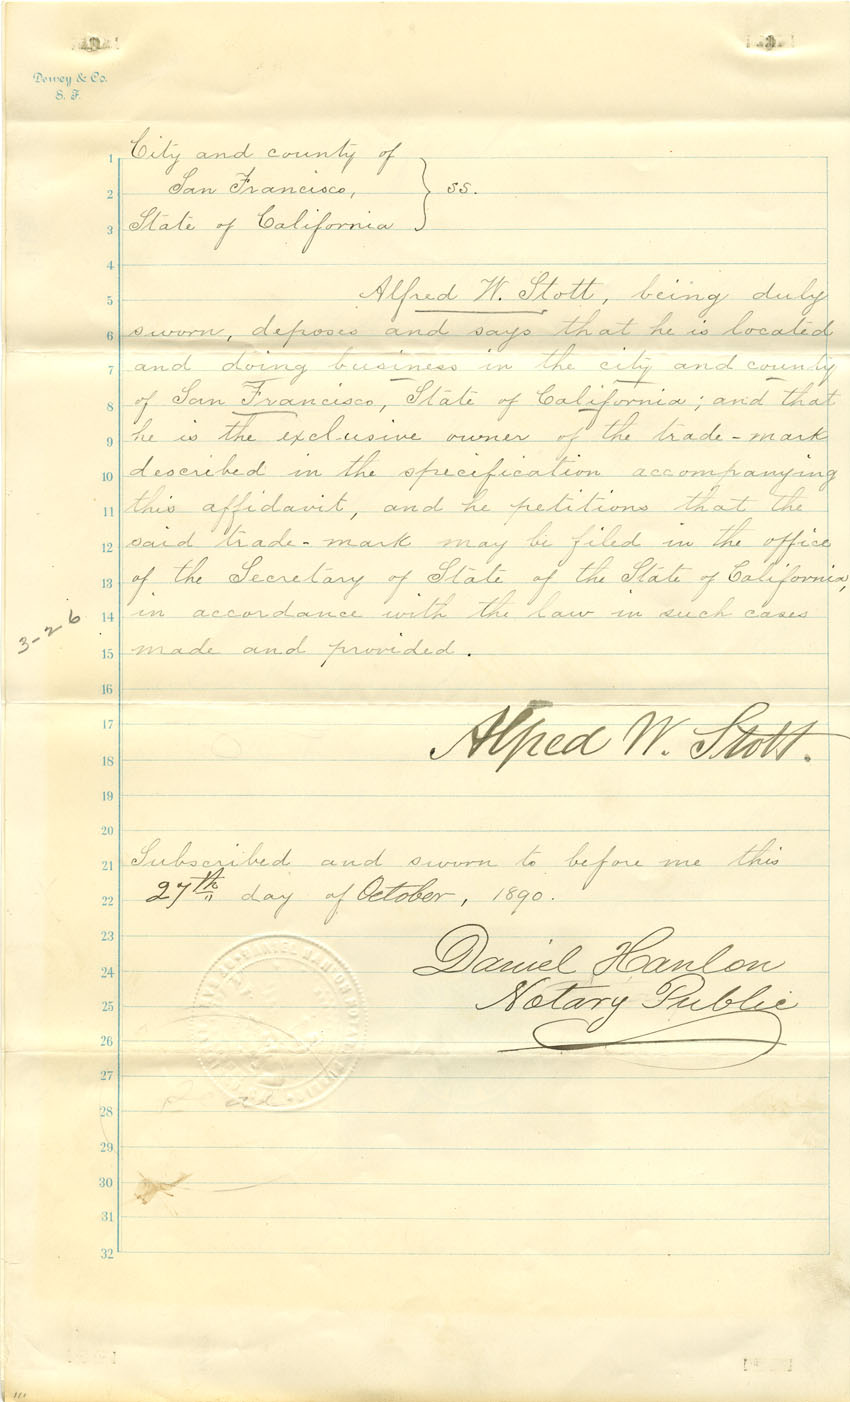 Dewey & Co.
S. F.
1 City and county of
2 San Francisco, } ss.
3 State of California
4
5 Alfred W. Stott, being duly
6 sworn, deposes and says that he is located
7 and doing business in the city and county
8 of San Francisco, State of California; and that
9 he is the exclusive owner of the trade-mark
10 described in the specification accompanying
11 this affidavit, and he petitions that the
12 said trade-mark may be filed in the office
13 of the Secretary of State of the State of California,
14 in accordance with the law in such cases
3-26
15 made and provided.
16
17
18 Alfred W. Stott.
19
20
21 Subscribed and sworn to before me this
22 27th day of October, 1890.
23
24 Daniel Hanlon
25 Notary Public
26
27
28
29
30
31
32